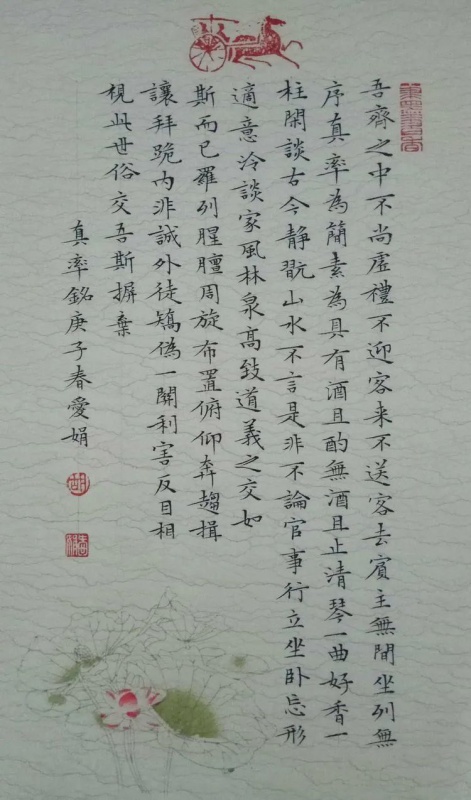 吾齊之中不尚虛禮不迎客来不送客去賓主無間坐列無
序真率為簡素為具有酒且酌無酒且止清琴一曲好香一
柱閑談古今静翫山水不言是非不論官事行立坐卧忘形
適意冷談家風林泉高致道義之交如
斯而已羅列腥膻周旋布置俯仰奔趨揖
讓拜跪内非誠外徒矯偽一關利害反目相
視此世俗交吾斯摒棄
真率銘庚子春愛娟